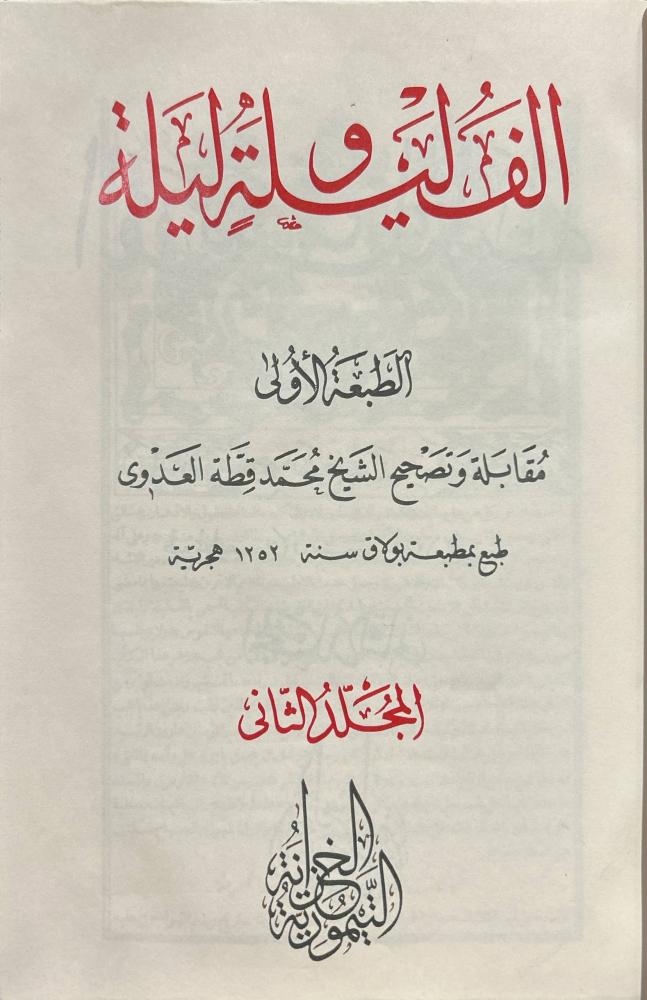 الفُ لَيلةٍ وَلَيلة
الطَّبعَةُ الأُولى
مُقَابَلة وَتَصْحِيح الشَيْخ مُحَمَّد قِطَّة العَدْوِى
طبع بمطبعة بولاق سنة ١٢٥٢ هجريّة
المُجَلّدُ الثّانى
الخزانة
التيمُوريّة